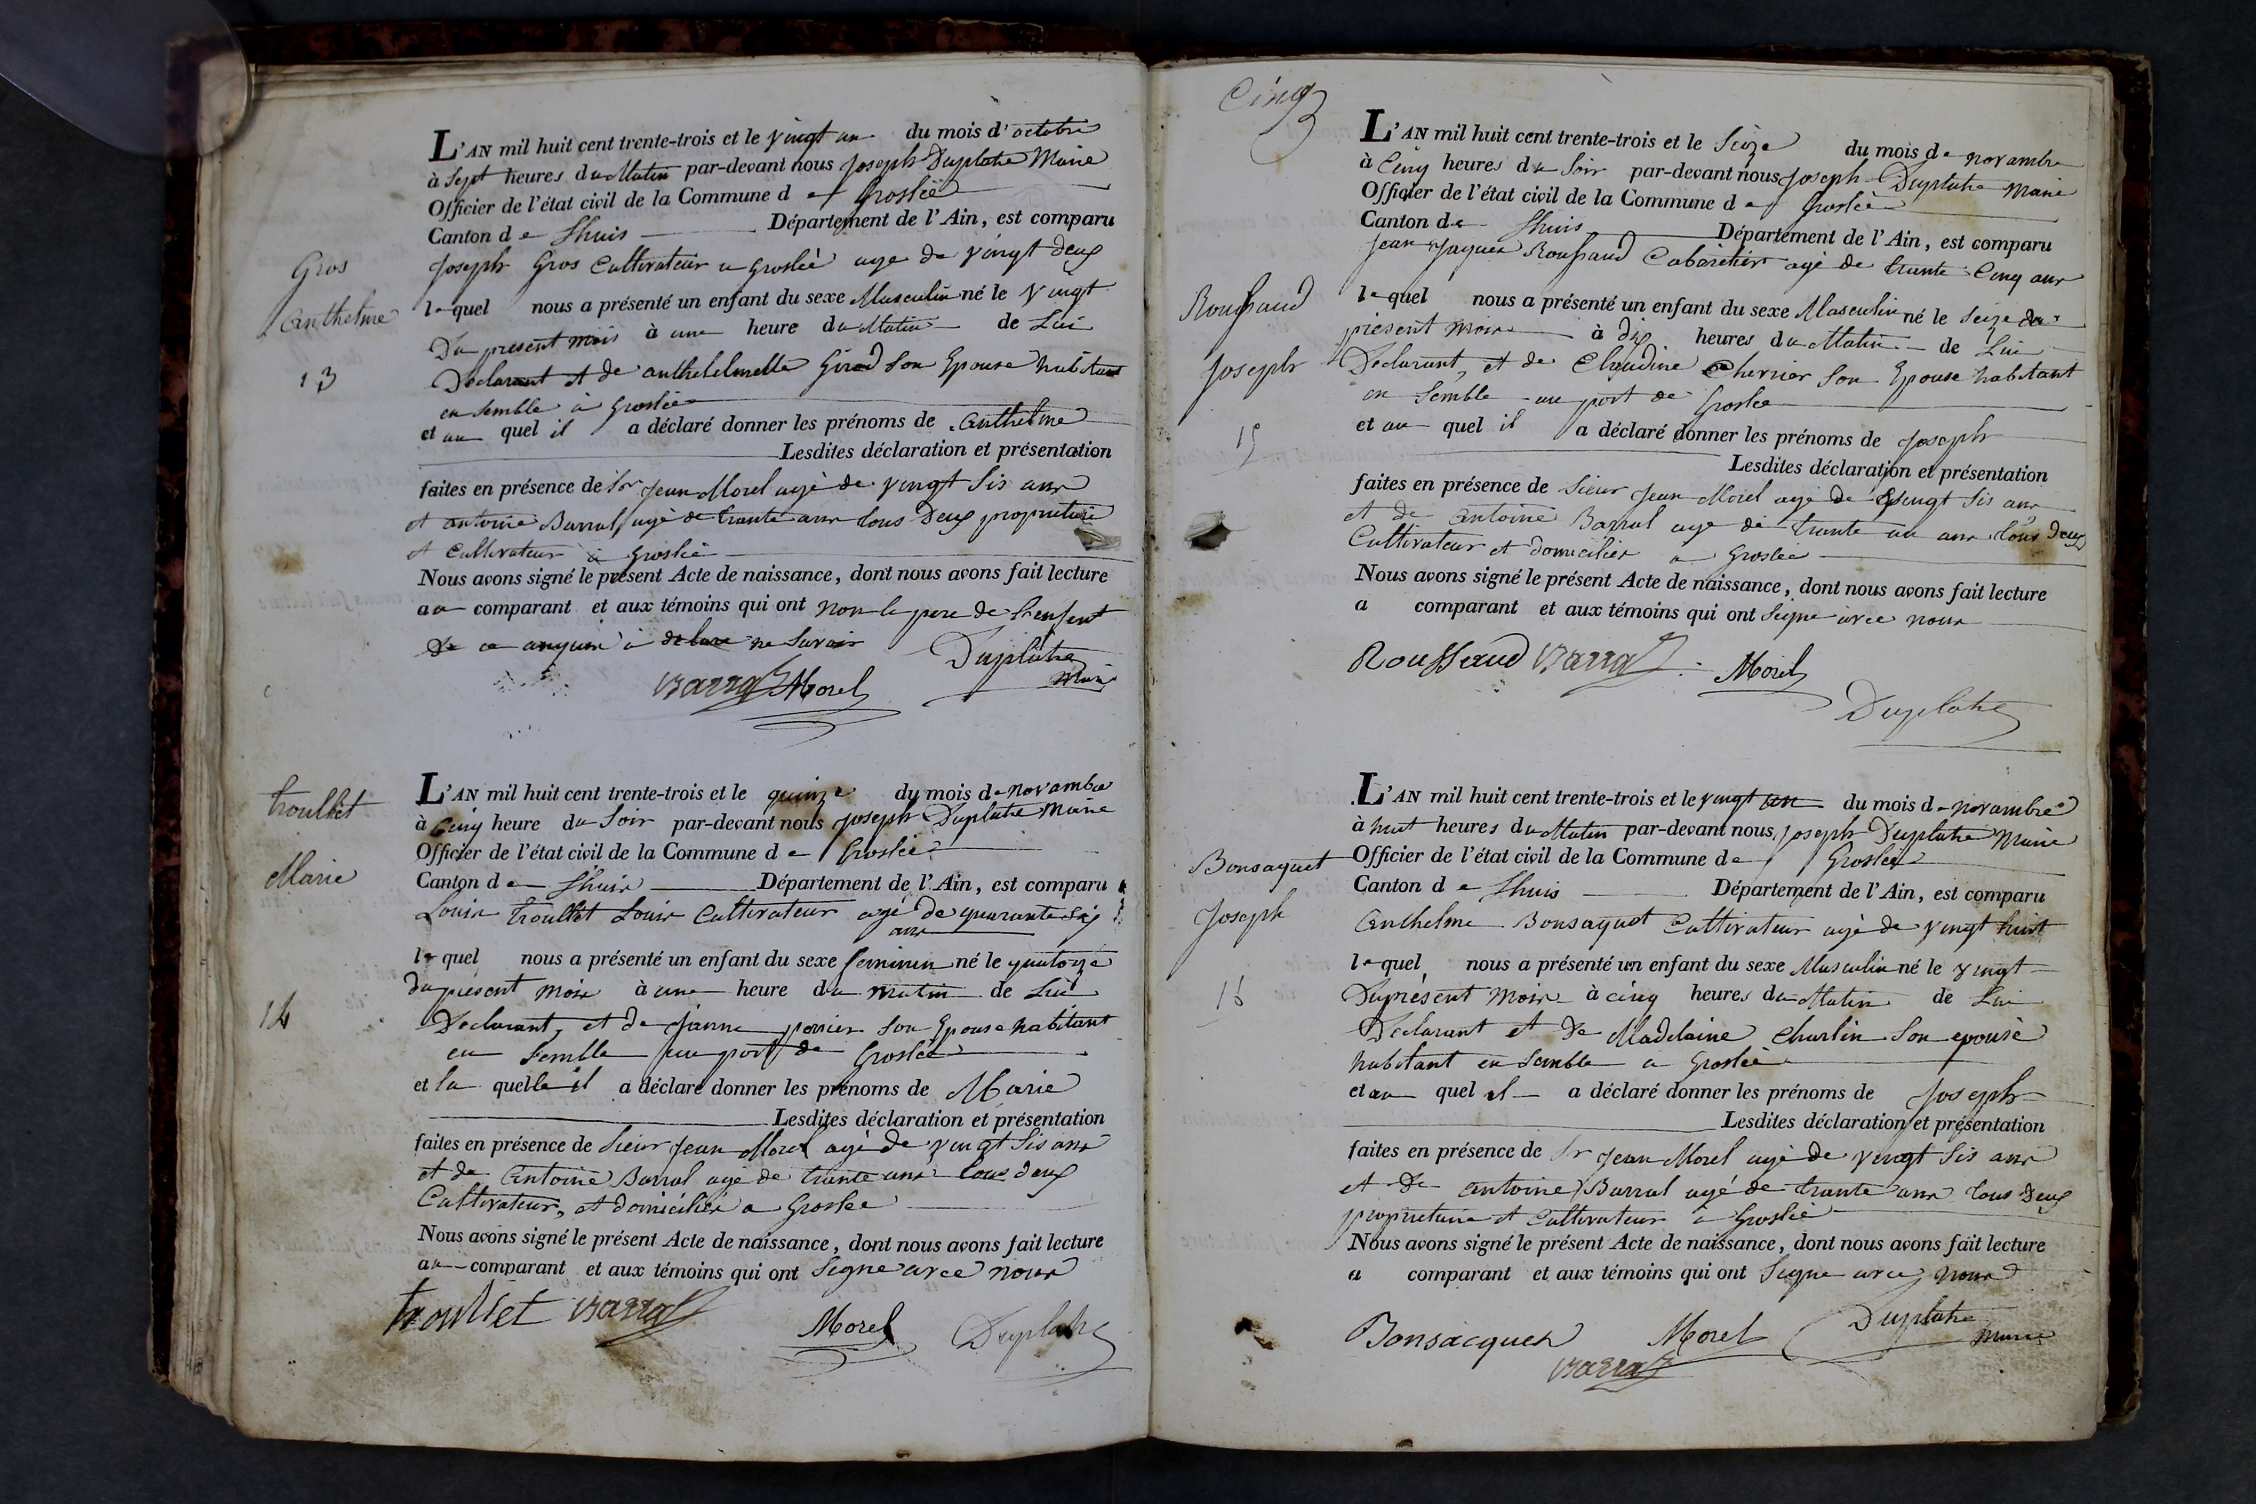 Gros
Anthelme
13
L'AN mil huit cent trente-trois et le vingt un du mois d'octobre
à Sept heures du Matin par-devant nous Joseph Duplatre Maire
Officier de l'état civil de la Commune de Groslée
Canton de Lhuis Département de l'Ain, est comparu
Joseph Gros Cultivateur a Groslée age de vingt deux
lequel nous a présenté un enfant du sexe Masculin né le vingt
Du present mois à une heure du Matin de Lui
Declarant et de anthelelmette Girod son Epouse habitant
en semble à Groslée
et au quel il a déclaré donner les prénoms de Anthelme
Lesdites déclaration et présentation
faites en présence de Sr Jean Morel agé de vingt sis ans
et antoine Barral agé de trante ans tous deux propriétaire
et Cultivateur à Groslée
Nous avons signé le présent Acte de naissance, dont nous avons fait lecture
au comparant et aux témoins qui ont non le pere de l'enfant
de ce anquin à delare ne Savoir
Duplatre
Maire
Barral Morel
Troulliet
Marie
14
L'AN mil huit cent trente-trois et le quinze du mois de novambre
à Cinq heure du Soir par-devant nous Joseph Duplatre Maire
Officier de l'état civil de la Commune de Groslée
Canton de Lhuis Département de l'Ain, est comparu
Louis Troulliet Louis Cultivateur agé de quarante six
ans
lequel nous a présenté un enfant du sexe feminin né le quatorze
du présent mois à une heure du matin de Lui
Declarant, et de Janne perrier son Epouse habitant
en semble au port de Groslée
et la quelle il a déclaré donner les prénoms de Marie
Lesdites déclaration et présentation
faites en présence de Sieur Jean Morel agé de vingt Sis ans
et de Antoine Barral agé de trante ans tous deux
Cultivateur, et domicilier a Groslée
Nous avons signé le présent Acte de naissance, dont nous avons fait lecture
au comparant et aux témoins qui ont Signe avec nous
troulliet Barral
Morel Duplatre
Cinq
Roussaud
Joseph
15
L'AN mil huit cent trente-trois et le Seize du mois de novambre
à Cinq heures du Soir par-devant nous Joseph Duplatre Maire
Officier de l'état civil de la Commune de Groslée
Canton de Lhuis Département de l'Ain, est comparu
Jean Jaques Roussaud Cabaretier agé de trante Cinq ans
lequel nous a présenté un enfant du sexe Masculin né le seize du
présent mois à dix heures du Matin de Lui
Declarant, et de Claudine Chervier son Epouse habitant
en semble au port de Groslée
et au quel il a déclaré donner les prénoms de Joseph
Lesdites déclaration et présentation
faites en présence de Sieur Jean Morel agé de vingt Sis ans
et de Antoine Barral age de trante un ans tous deux
Cultivateur et domicilier a Groslée
Nous avons signé le présent Acte de naissance, dont nous avons fait lecture
a comparant et aux témoins qui ont Signe avec nous
Roussaud Barral Morel
Duplatre
Bonsaquet
Joseph
16
L'AN mil huit cent trente-trois et le vingt un du mois de novambre
à huit heures du Matin par-devant nous Joseph Duplatre Maire
Officier de l'état civil de la Commune de Groslée
Canton de Lhuis Département de l'Ain, est comparu
Anthelme Bonsaquet Cultivateur agé de vingt huit
lequel nous a présenté un enfant du sexe Masculin né le vingt
Du présent mois à cinq heures du Matin de Lui
Declarant et De Madelaine Charlin son epouse
habitant en semble a Groslée
et au quel il a déclaré donner les prénoms de Joseph
Lesdites déclaration et présentation
faites en présence de Sr Jean Morel agé de vingt Sis ans
et De antoine Barral agé de trante ans tous Deux
propriétaire et Cultivateur a Groslée
Nous avons signé le présent Acte de naissance, dont nous avons fait lecture
a comparant et aux témoins qui ont Signe avec nous
Bonsacquet Morel Duplatre
Maire
Barral